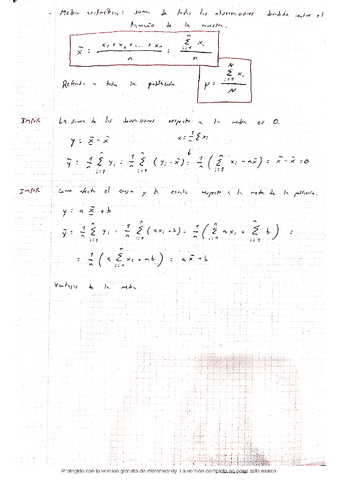 - Media aritmética: suma de todas las observaciones dividida entre el
tamaño de la muestra.
x̄ = (x₁ + x₂ + ... + xₙ) / n = (∑ᵢ₌₁ⁿ xᵢ) / n
Referida a toda la población μ = (∑ᵢ₌₁ᴺ xᵢ) / N
IMPOR La suma de las desviaciones respecto a la media es 0.
y = x̄ - x̄ x̄ = 1/n ∑ xᵢ
ȳ = 1/n ∑ᵢ₌₁ⁿ yᵢ = 1/n ∑ᵢ₌₁ⁿ (xᵢ - x̄) = 1/n (∑ᵢ₌₁ⁿ xᵢ - nx̄) = x̄ - x̄ = 0
IMPOR Como afecta el origen y la escala respecto a la media de la población.
y = a x̄ + b
ȳ = 1/n ∑ᵢ₌₁ⁿ yᵢ = 1/n ∑ᵢ₌₁ⁿ (a xᵢ + b) = 1/n (∑ᵢ₌₁ⁿ a xᵢ + ∑ᵢ₌₁ⁿ b) =
= 1/n (a ∑ᵢ₌₁ⁿ xᵢ + nb) = a x̄ + b
Ventajas de la media
Protegido con la versión gratuita de Watermarkly. La versión completa no pone esta marca.